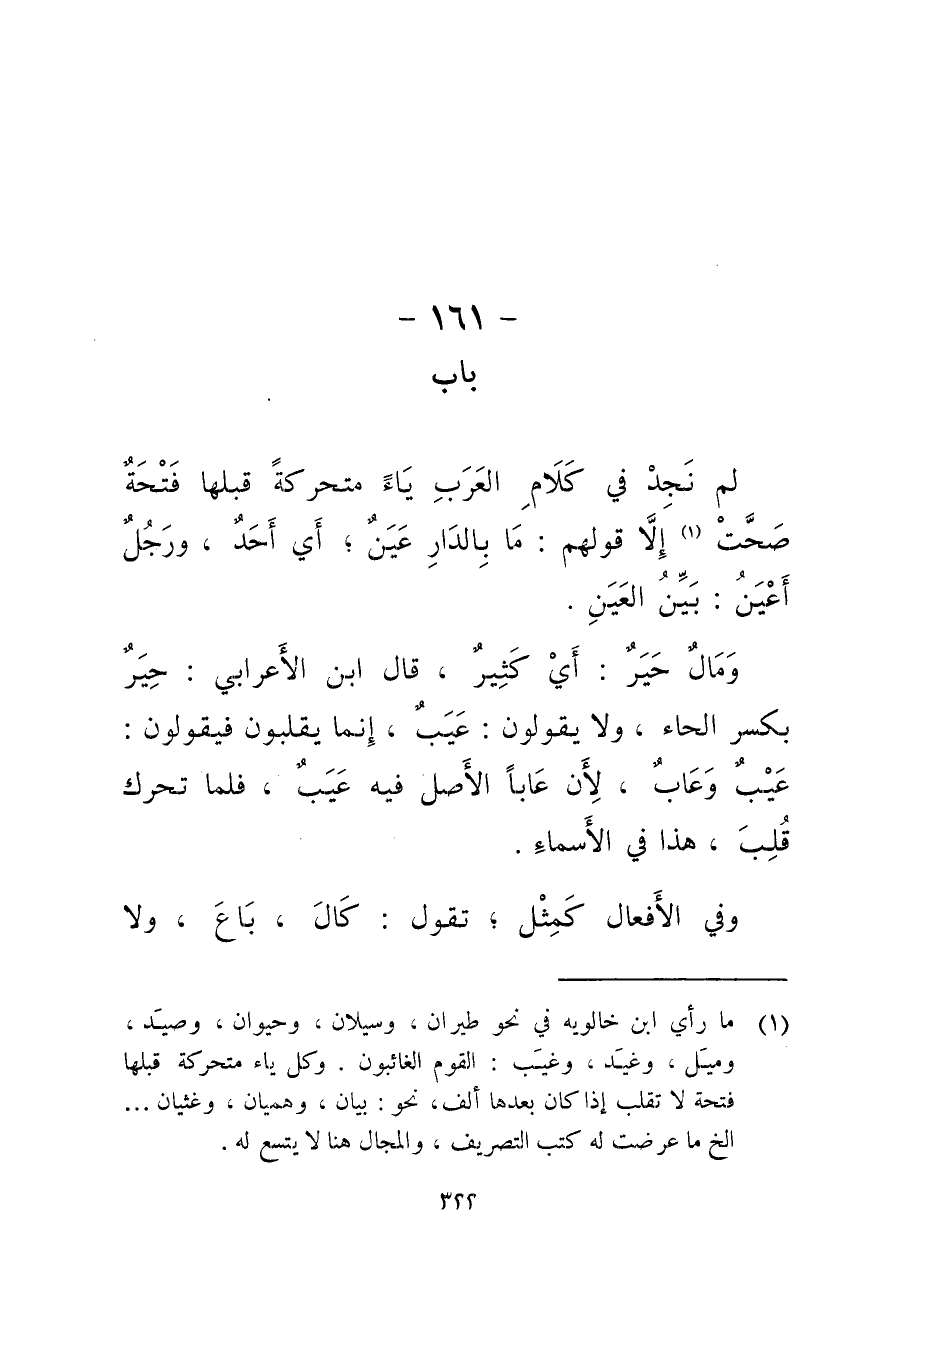 - ١٦١ -
باب
لم نَجِدْ في كَلَامِ العَرَبِ يَاءً متحركةً قبلها فَتْحَةٌ
صَحَّتْ (١) إِلَّا قولهم : مَا بِالدَارِ عَيَنٌ ؛ أَي أَحَدٌ ، ورَجُلٌ
أَعْيَنُ : بَيِّنُ العَيَنِ .
وَمَالٌ حَيَرٌ : أَيْ كَثِيرٌ ، قال ابن الأَعرابي : حِيَرٌ
بكسر الحاء ، ولا يقولون : عَيَبٌ ، إِنما يقلبون فيقولون :
عَيْبٌ وَعَابٌ ، لِأَن عَاباً الأَصل فيه عَيَبٌ ، فلما تحرك
قُلِبَ ، هذا في الأَسماءِ .
وفي الأَفعال كَمِثْل ؛ تقول : كَالَ ، بَاعَ ، ولا
(١) ما رأي ابن خالويه في نحو طيران ، وسيلان ، وحيوان ، وصيَد ،
وميَل ، وغيَد ، وغيَب : القوم الغائبون . وكل ياء متحركة قبلها
فتحة لا تقلب إذا كان بعدها ألف، نحو : بيان ، وهميان ، وغثيان ...
الخ ما عرضت له كتب التصريف ، والمجال هنا لا يتسع له .
٣٢٢